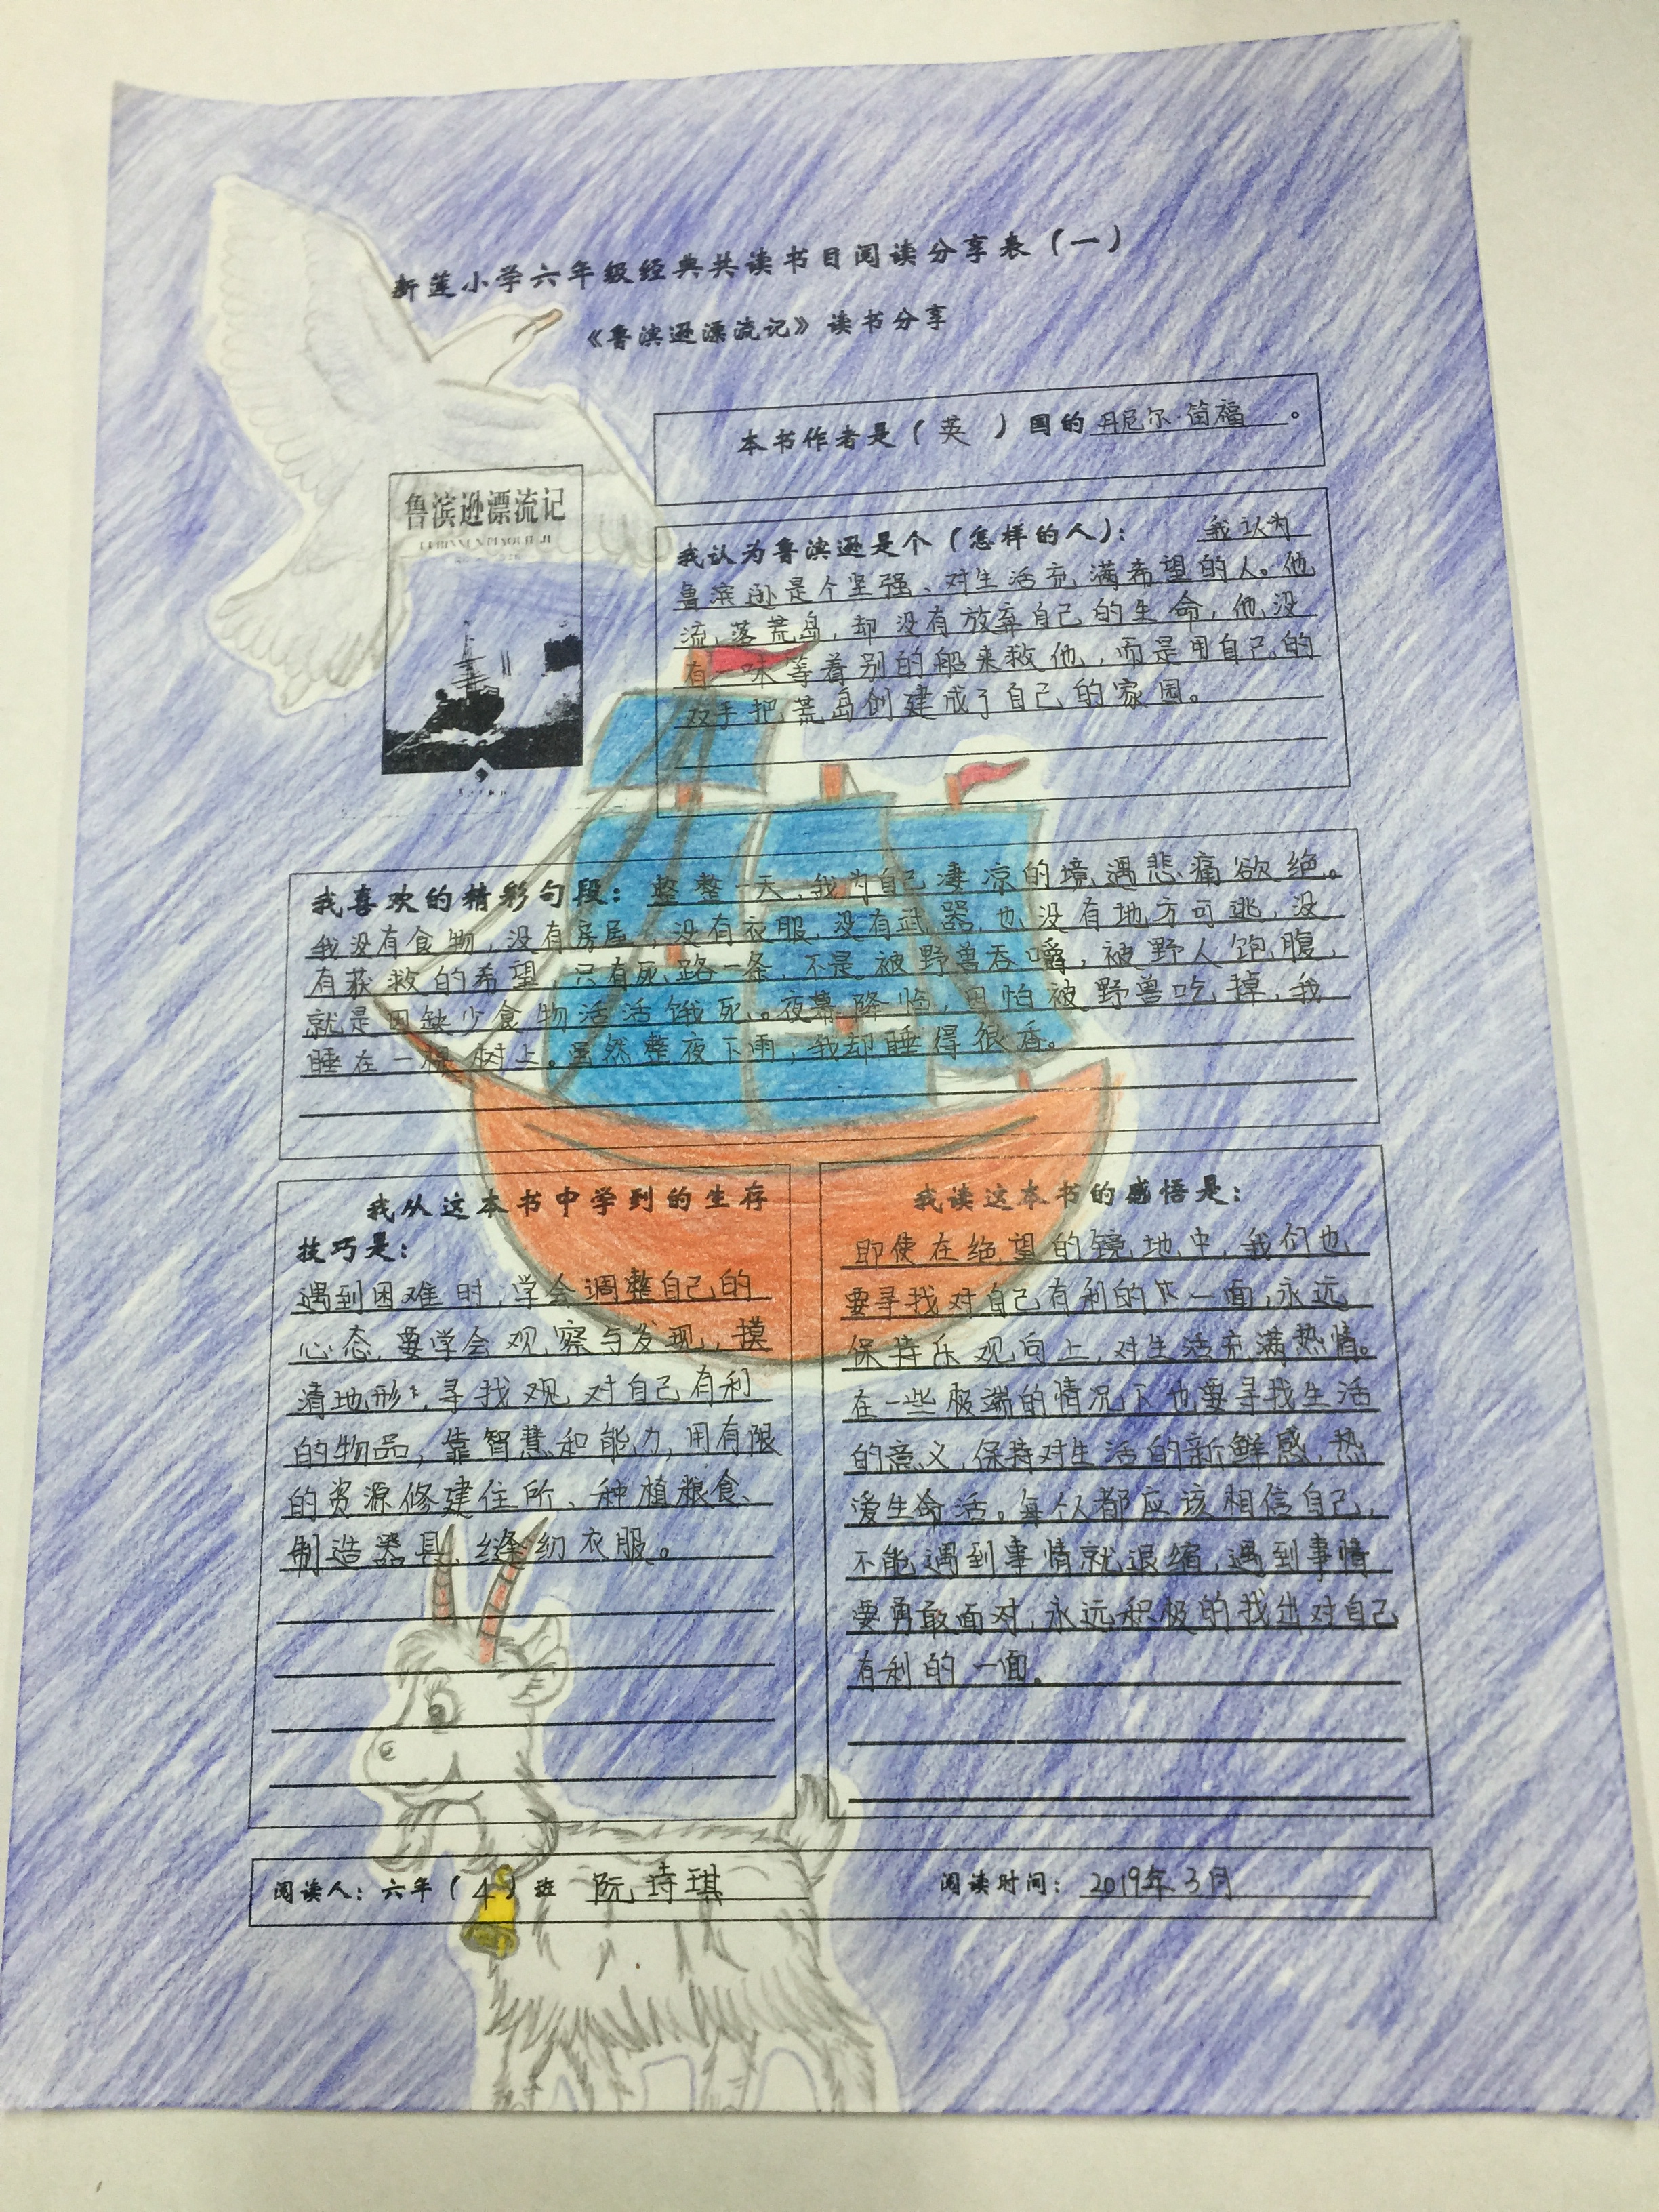 新莲小学六年级经典共读书目阅读分享表（一）
《鲁滨逊漂流记》读书分享
本书作者是（英）国的丹尼尔·笛福。
鲁滨逊漂流记
我认为鲁滨逊是个（怎样的人）：我认为
鲁滨逊是个坚强、对生活充满希望的人。他
流落荒岛，却没有放弃自己的生命，他没
有一味等着别的船来救他，而是用自己的
双手把荒岛创建成了自己的家园。
我喜欢的精彩句段：整整一天，我为自己凄凉的境遇悲痛欲绝。
我没有食物，没有房屋，没有衣服，没有武器，也没有地方可逃，没
有获救的希望，只有死路一条，不是被野兽吞嚼，被野人饱腹，
就是因缺少食物活活饿死。夜幕降临，因怕被野兽吃掉，我
睡在一棵树上。虽然整夜下雨，我却睡得很香。
我从这本书中学到的生存
技巧是：
遇到困难时，学会调整自己的
心态，要学会观察与发现，摸
清地形，寻找观对自己有利
的物品，靠智慧和能力，用有限
的资源修建住所、种植粮食、
制造器具、缝纫衣服。
我读这本书的感悟是：
即使在绝望的镜地中，我们也
要寻找对自己有利的一面，永远
保持乐观向上，对生活充满热情。
在一些极端的情况下也要寻找生活
的意义，保持对生活的新鲜感，热
爱生命活。每个人都应该相信自己，
不能遇到事情就退缩，遇到事情
要勇敢面对，永远积极的找出对自己
有利的一面。
阅读人：六年（4）班 阮诗琪 阅读时间：2019年3月